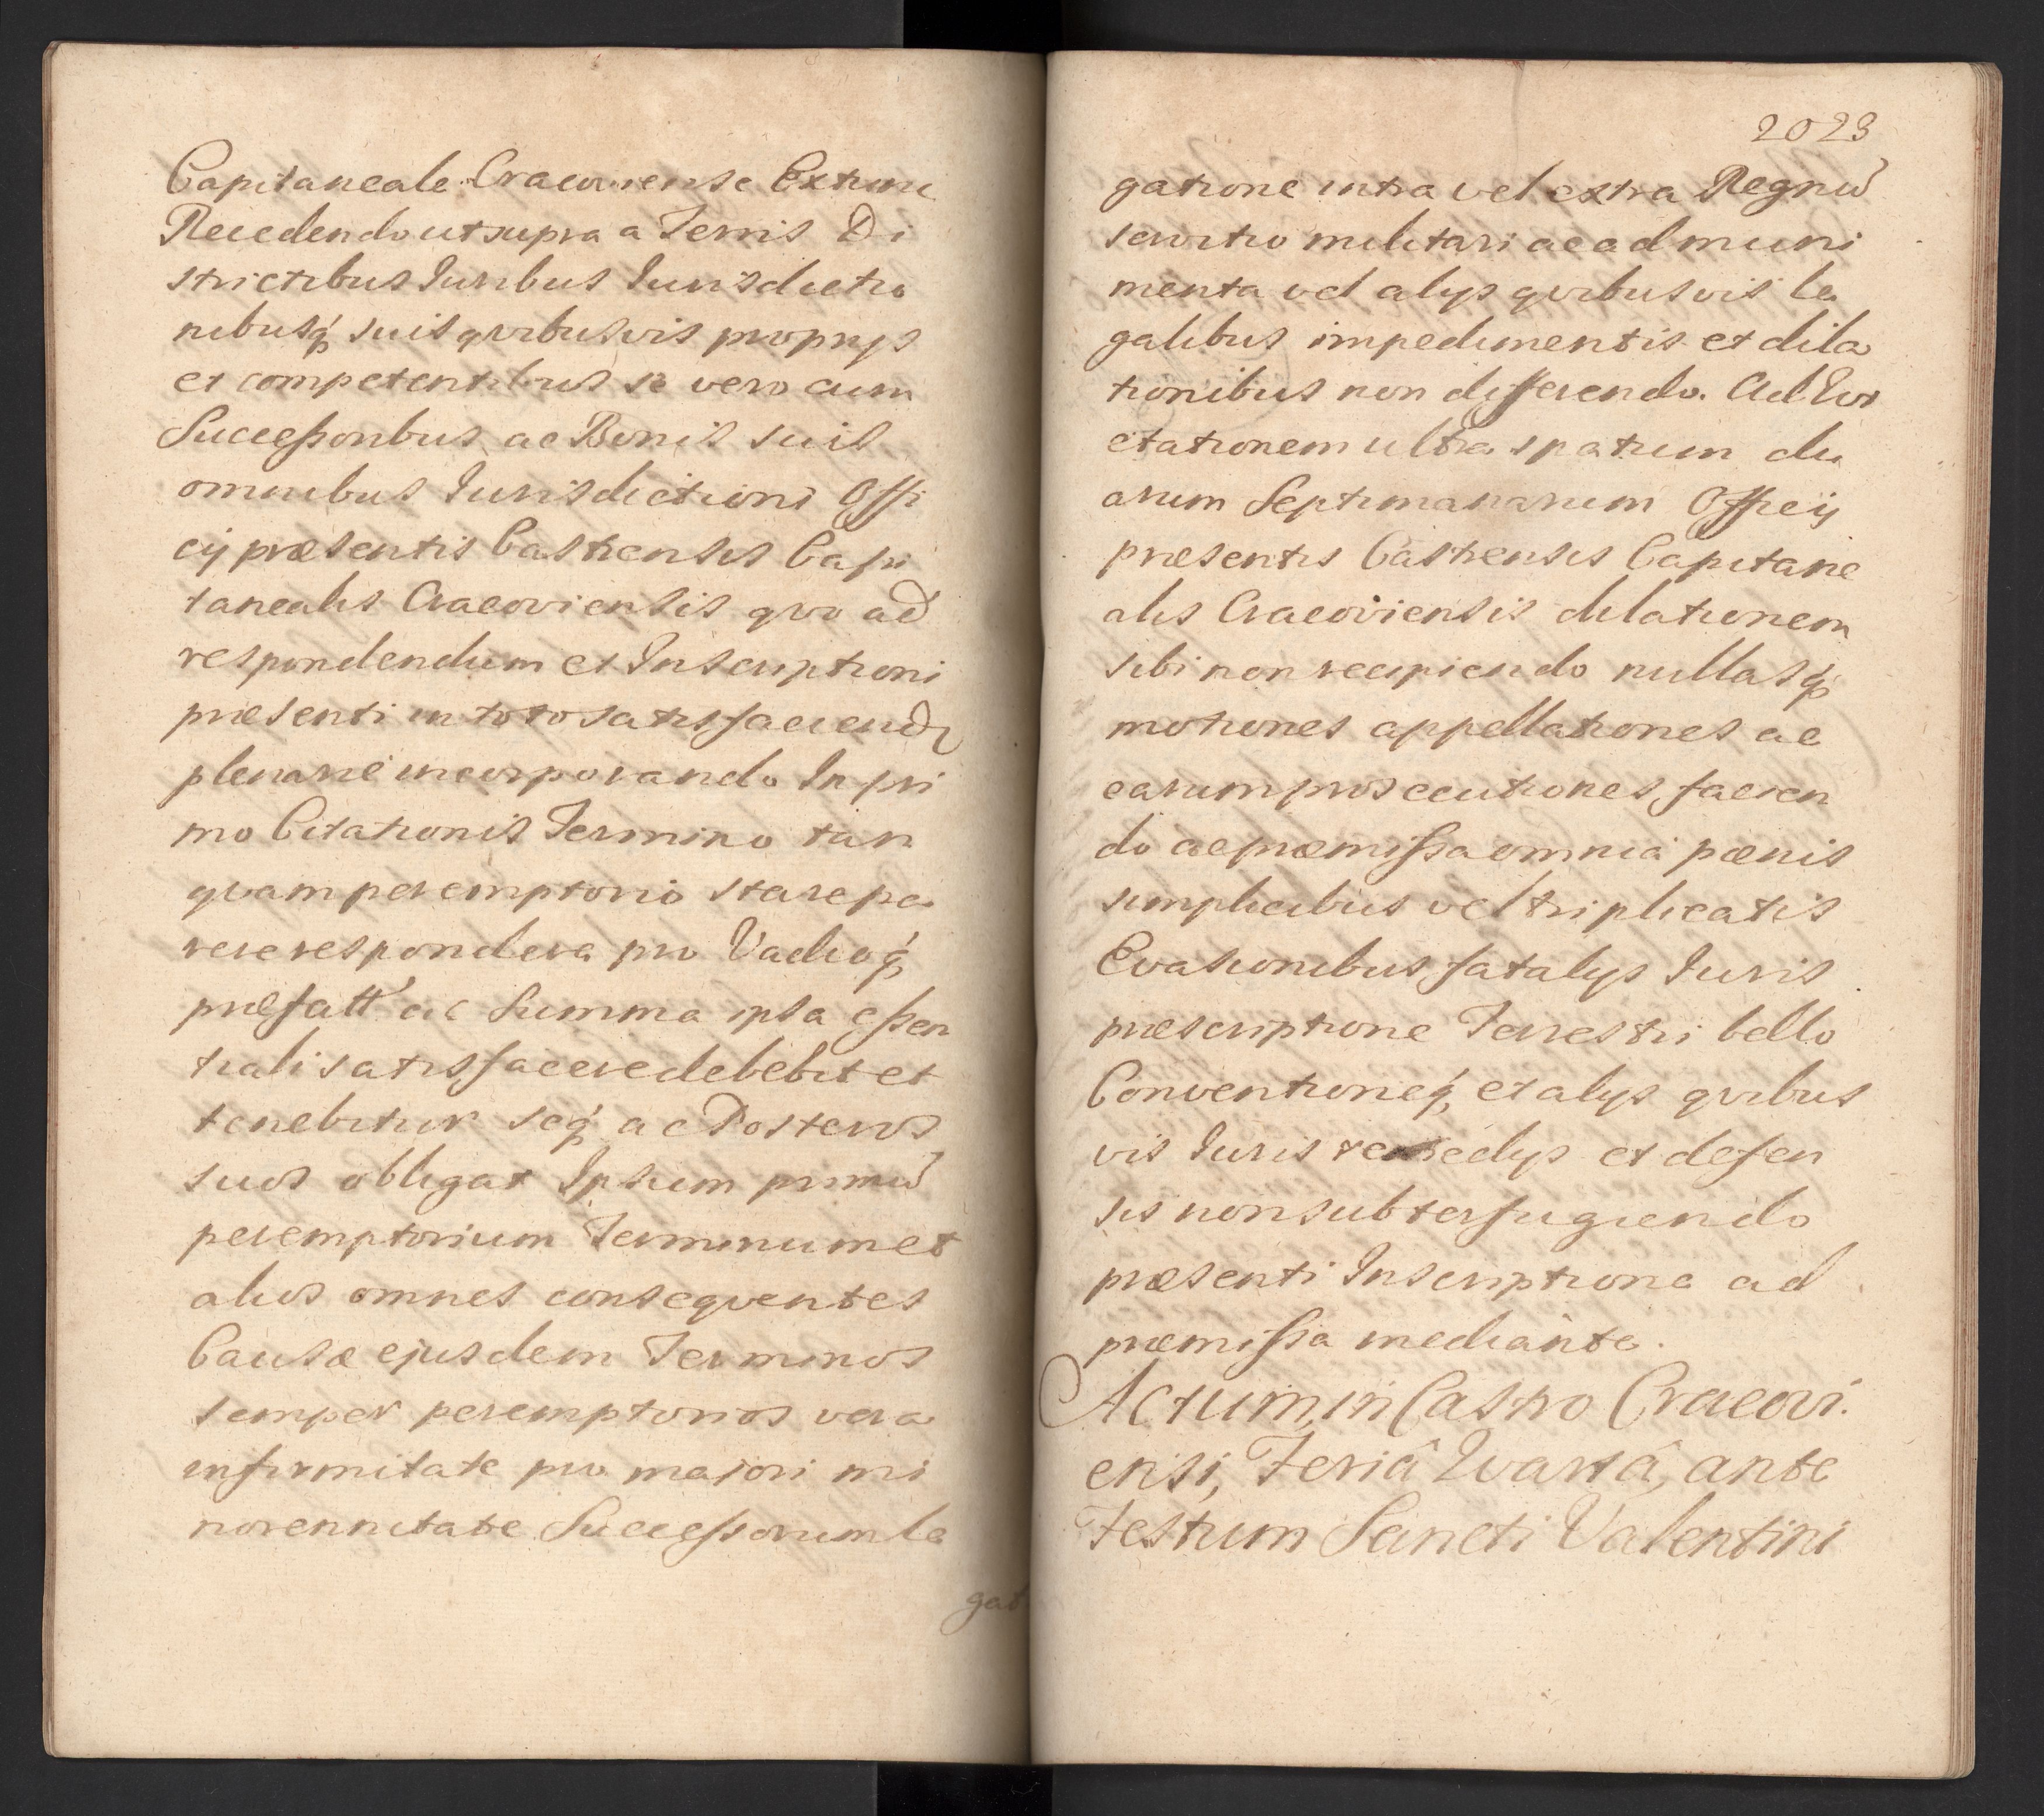 Capitaneale Cracoviense Extunc
Recedendo ut supra a Terris Di
strictibus Iuribus Iurisdictio
nibusq́ suis qvibusvis proprys
et competentibus se vero cum
Successoribus ac Bonis suis
omnibus Iurisdictioni Offi
cij præsentis Castrensis Capi
tanealis Cracoviensis qvo ad
respondendum et Inscriptioni
præsenti in toto satisfaciend
plenarie incorporando In pri
mo Citationis Termino tan
qvam peremptorio stare pa
rere respondere pro Vadioq́
præfatt ac Summa ipsa essen
tiali satisfacere debebit et
tenebitur seq́ ac Posteros
suos obligat Ipsum primū
peremptorium Terminum et
alios omnes conseqventes
Causæ ejusdem Terminos
semper peremptorios vera
infirmitate pro majori mi
norennitate Successorum le
gat
2023
gatione intra vel extra Regnū
servitio militari ac ad muni
menta vel alys qvibusvis le
galibus impedimentis et dila
tionibus non differendo. Ad Evi
ctationem ultra spatium du
arum Septimanarum Officij
præsentis Castrensis Capitane
alis Cracoviensis dilationem
sibi non recipiendo nullasq́
motiones appellationes ac
earum prosecutiones facien
do ac præmissa omnia pœnis
simplicibus vel triplicatis
Evasionibus fatalys Iuris
præscriptione Terrestri bello
Conventioneq́ et alys qvibus
vis Iuris remedys et defen
sis non subterfugiendo
præsenti Inscriptione ad
præmissa mediante.
Actum in Castro Cracovi.
ensi, Feriâ Qvartâ, ante
Festum Sancti Valentini